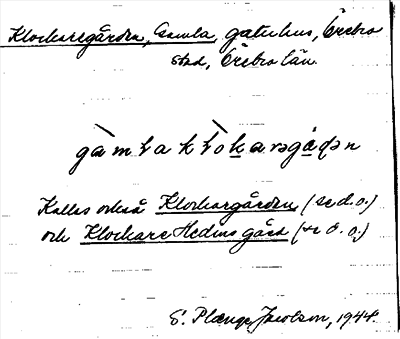 Klockaregården, Gamla, gatuhus, Örebro
stad, Örebro län.
gàmɫa kɫòkarəgáɖən
Kallas också Klockargården (se d. o.)
och Klockare Hedins gård (se d. o.)
S. Plænge Jacobson, 1944.